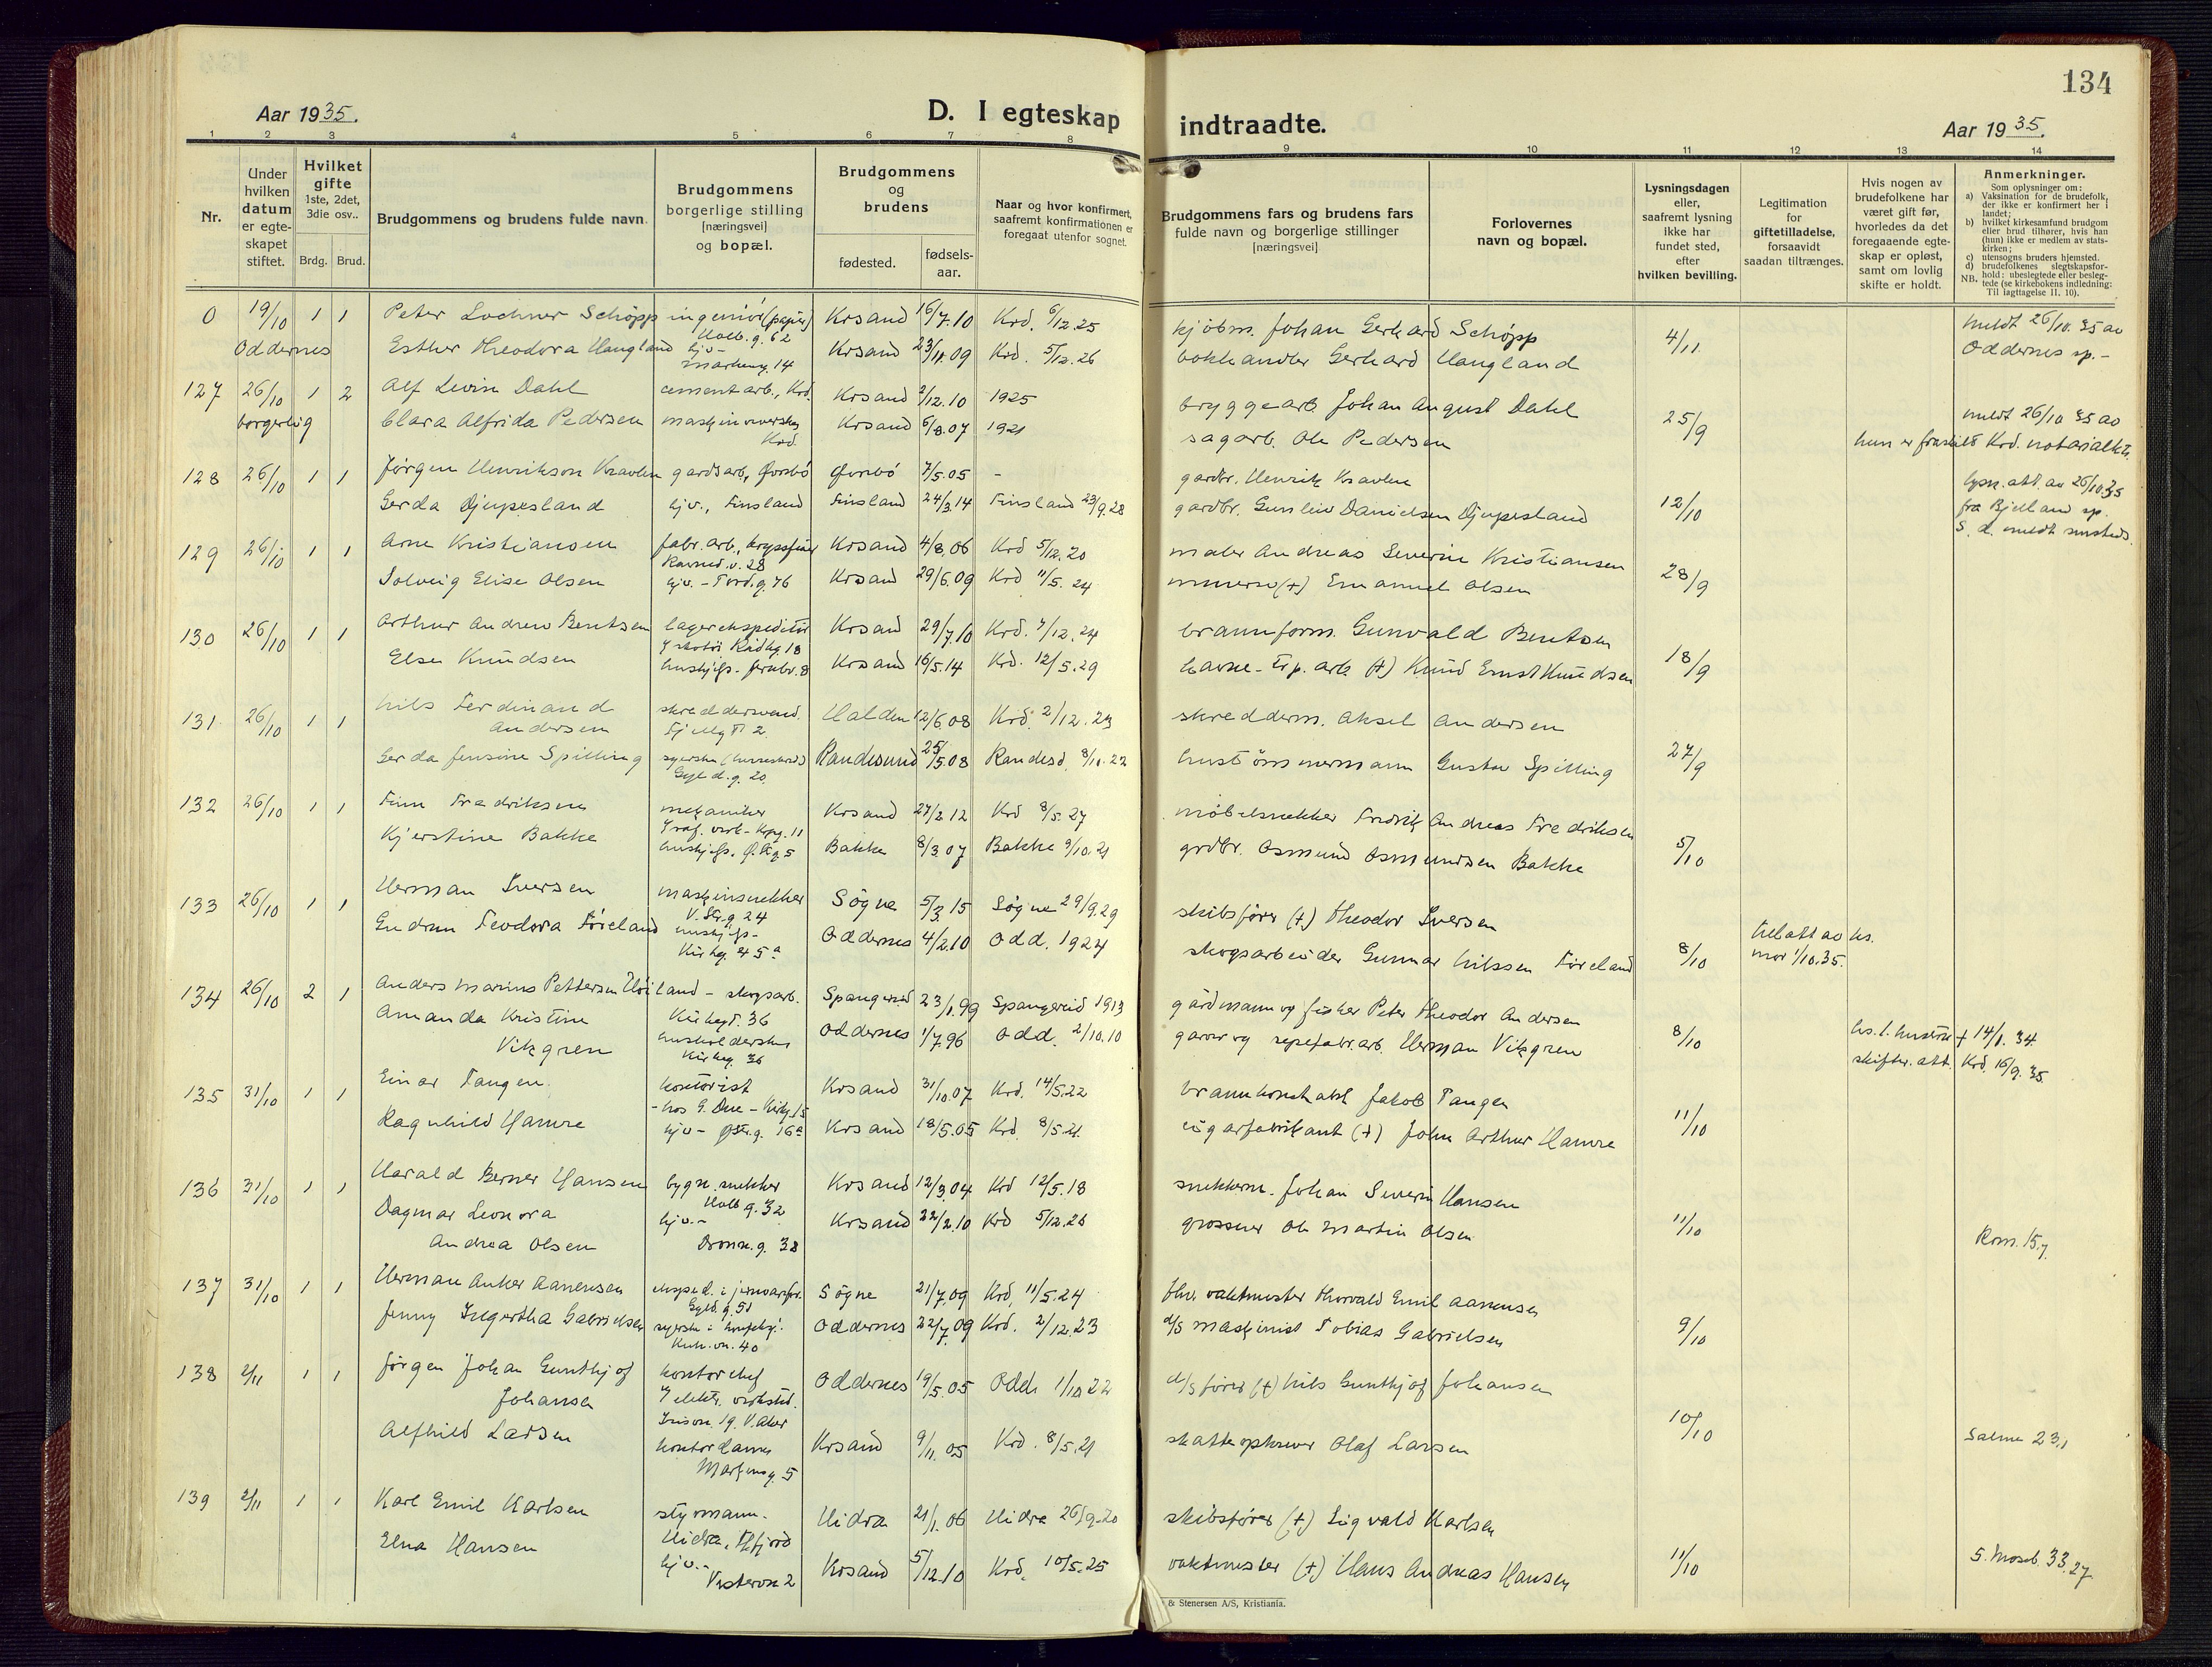 134
Aar 1935.
D. I egteskap indtraadte.
Aar 1935.
1 2 3 4 5 6 7 8 9 10 11 12 13 14
Nr.
Under hvilken datum er egte-skapet stiftet.
Hvilket gifte 1ste, 2det, 3die osv..
Brdg. Brud.
Brudgommens og brudens fulde navn.
Brudgommens borgerlige stilling [næringsvei] og bopæl.
Brudgommens og brudens
fødested.
fødsels-aar.
Naar og hvor konfirmert, saafremt konfirmationen er foregaat utenfor sognet.
Brudgommens fars og brudens fars fulde navn og borgerlige stillinger [næringsvei]
Forlovernes navn og bopæl.
Lysningsdagen eller, saafremt lysning ikke har fundet sted, efter hvilken bevilling.
Legitimation for giftetilladelse, forsaavidt saadan tiltrænges.
Hvis nogen av brudefolkene har været gift før, hvorledes da det foregaaende egte-skap er opløst, samt om lovlig skifte er holdt.
Anmerkninger.
Som oplysninger om:
a) Vaksination for de brudefolk, der ikke er konfirmert her i landet;
b) hvilket kirkesamfund brudgom eller brud tilhører, hvis han (hun) ikke er medlem av stats-kirken;
c) utensogns bruders hjemsted.
d) brudefolkenes slegtskapsfor-hold: ubeslegtede eller besleg-tede (se kirkebokens indledning: Til Iagttagelse II. 10).
NB.
0 19/10 1 1 Peter Lochner Schöpp ingeniör (papir) Krsand 16/7.10 Krd. 6/12.25 kjöbm. Johan Gerhard Schöpp 4/11 meldt 26/10.35 av
Holb.g. 62
Oddernes Esther Theodora Haugland hjv- Krsand 23/11.09 Krd. 5/12.26 bokhandler Gerhard Haugland Oddernes sp.-
Markeng. 14
127 26/10 1 2 Alf Levin Dahl cementarb., Krd. Krsand 2/12.10 1925 bryggearb. Johan August Dahl 25/9 meldt 26/10 35 av
borgerlig Clara Alfrida Pedersen Krd. Krsand 6/8.07 1921 sagarb. Ole Pedersen hun er fraskilt Krd. notarialktr.
128 26/10 1 1 Jörgen Henrikson Kravlen gardsarb., Øvrebö Øvrebö 7/5.05 - gardbr. Henrik Kravlen 12/10 lysn.att. av 26/10.35
Gerda Djupesland hjv., Finsland Finsland 24/3.14 Finsland 23/9.28 gardbr. Gunleiv Danielsen Djupesland fra Bjelland sp.
S. d. meldt sammesteds.
129 26/10 1 1 Arne Kristiansen fabr.arb., Krsand 4/8.06 Krd 5/12.20 maler Andreas Severin Kristiansen 28/9
Ravned.v. 28
Solveig Elise Olsen hjv. - Tord.g. 76 Krsand 29/6.09 Krd 11/5.24 murer (+) Emanuel Olsen
130 26/10 1 1 Arthur Andrew Bentsen lagerekspeditör Krsand 29/7.10 Krd. 7/12.24 brannform. Gunvald Bentsen 18/9
i skotöi Rådhg. 18
Else Knudsen hushjelp- 8 Krsand 16/5.14 Krd. 12/5.29 havne-Tip. arb. (+) Knud Ernst Knudsen
131 26/10 1 1 Nils Ferdinand skreddersvend. Halden 12/6.08 Krd. 2/12.23 skredderm. Aksel Andersen 27/9
Andersen Fjellgt 2.
Gerda Jensine Spilling syerske Randesund 25/5.08 Randesd. 8/10.22 hustömmermann Gustav Spilling
Gyld.g. 20
132 26/10 1 1 Finn Fredriksen mekaniker Krsand 27/2 12 Krd 8/5.27 möbelsnekker Fredrik Andreas Fredriksen 5/10
Kjerstine Bakke hushjelp. Ø.Stg. 5 Bakke 8/3.07 Bakke 9/10.21 grdbr. Osmund Osmundsen Bakke
133 26/10 1 1 Herman Iversen maskinsnekker Sögne 5/3.15 Sögne 29/9.29 skibsförer (+) Theodor Iversen 8/10 till.att av hs.
V.Str.g 24
Gudrun Teodora Föreland hushjelp- Oddernes 4/2.10 Odd. 1924 skogsarbeider Gunnar Nilssen Föreland mor 1/10.35.
Kirkeg. 45 a
134 26/10 2 1 Anders Marius Pettersen Höiland - skogsarb. Spangereid 23/1.99 Spangereid 1913 gårdmann og fisker Peter Theodor Andersen 8/10 hs. 1. hustru + 14/1.34.
Kirkegt. 36
Amanda Kristine husholderske Oddernes 1/7.96 Odd. 2/10.10 garver og repefabr.arb. Herman Vikgren skifter. att. Krd. 16/9.35.
Vikgren Kirkeg. 36
135 31/10 1 1 Einar Tangen kontorist Krsand 31/10.07 Krd. 14/5.22 brannkonstabel Jakob Tangen 11/10
- hos G. Due - Kirkg. 15
Ragnhild Hamre hjv - Østr.g. 16 a Krsand 18/5.05 Krd. 8/5.21. cigarfabrikant (+) John Arthur Hamre
136 31/10 1 1 Harald Berner Hansen bygn.snekker Krsand 12/3.04 Krd 12/5.18 snekkerm. Johan Severin Hansen 11/10
Holb g. 32
Dagmar Leonora hjv.- Krsand 22/2.10 Krd 5/12.26 grosserer Ole Martin Olsen Rom. 15.7.
Andrea Olsen Dronn.g. 38
137 31/10 1 1 Herman Anker Aanensen eksped. i jernvareforr. Sögne 21/7.09 Krd. 11/5.24 fhv. vaktmester Thorvald Emil Aanensen 9/10
Gyld.g. 51
Jenny Ingertha Gabrielsen syerske i Oddernes 22/7.09 Krd. 2/12.23 d/s maskinist Tobias Gabrielsen
Kuh.vn. 40
138 2/11 1 1 Jörgen Johan Gunthjof kontorchef Oddernes 19/5.05 Odd. 1/10 22 d/s förer (+) Nils Gunthjof Johansen 10/10
Johansen i elektr. verksted.
19. V. Aker
Alfhild Larsen kontordame Krsand 9/11.05 Krd. 8/5.21 skatteopkrever Olaf Larsen Salme 23,1
Markensg. 5
139 2/11 1 1 Karl Emil Karlsen styrmann. Hidra 21/1.06 Hidra 26/9.20 skibsförer (+) Sigvald Karlsen 11/10
Hidra, Flfjord
Elna Hansen hjv.- Krsand 5/12.10 Krd. 10/5.25 vaktmester (+) Hans Andreas Hansen 5. Moseb. 33.27
Vestervn 2
& Stenersen A/S, Kristiania.